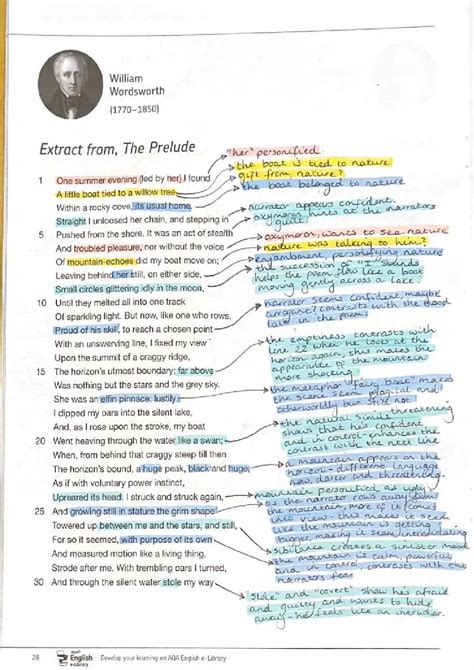 William
Wordsworth
(1770–1850)
Extract from, The Prelude
"her" personified.
the boat is tied to nature
1 One summer evening (led by her) I found
gift from nature?
A little boat tied to a willow tree
the boat belonged to nature
Within a rocky cove, its usual home.
narrator appears confident.
Straight I unloosed her chain, and stepping in
oxymoron hints at the narrators
guilt
5 Pushed from the shore. It was an act of stealth
oxymoron, wants to see nature
And troubled pleasure, nor without the voice
nature was talking to him?
Of mountain-echoes did my boat move on;
enjambment, personifying nature
Leaving behind her still, on either side,
the succession of "l" sounds
helps the poem flow like a boat
Small circles glittering idly in the moon,
moving gently across a lake.
10 Until they melted all into one track
narrator seems confident, maybe
Of sparkling light. But now, like one who rows,
arrogant? contrasts with the mood
Proud of his skill, to reach a chosen point
later in the poem
With an unswerving line, I fixed my view
the emptiness contrasts with
Upon the summit of a craggy ridge,
line 22 when he look at the
horizon again, this makes the
15 The horizon's utmost boundary; far above
of the mountain
more shocking.
Was nothing but the stars and the grey sky.
the metaphor "fairy boat" makes
She was an elfin pinnace; lustily
the scene seem magical and
otherworldly but still not
I dipped my oars into the silent lake,
threatening
And, as I rose upon the stroke, my boat
the natural simile
shows that he's confident
20 Went heaving through the water like a swan;
and in control - enhances the
contrast with the next line
When, from behind that craggy steep till then
a mountain appears on the
The horizon's bound, a huge peak, black and huge,
horizon - different language
now, darker and threatening.
As if with voluntary power instinct,
mountain personified as ugly
Upreared its head. I struck and struck again,
as the narrator rows away from
the mountain, more of it comes
25 And growing still in stature the grim shape
into view - this makes it seem
like the mountain is getting
Towered up between me and the stars, and still,
bigger, making it seem intimidating
For so it seemed, with purpose of its own
sibilance creates a sinister mood
the mountain is calm, powerful
And measured motion like a living thing,
and in control contrasts with the
Strode after me. With trembling oars I turned,
narrators fear
30 And through the silent water stole my way
"stole" and "covert" show he's afraid
and guilty and wants to hide
away - he feels like an intruder.
28
AQA
English
e-Library
Develop your learning on AQA English e-Library